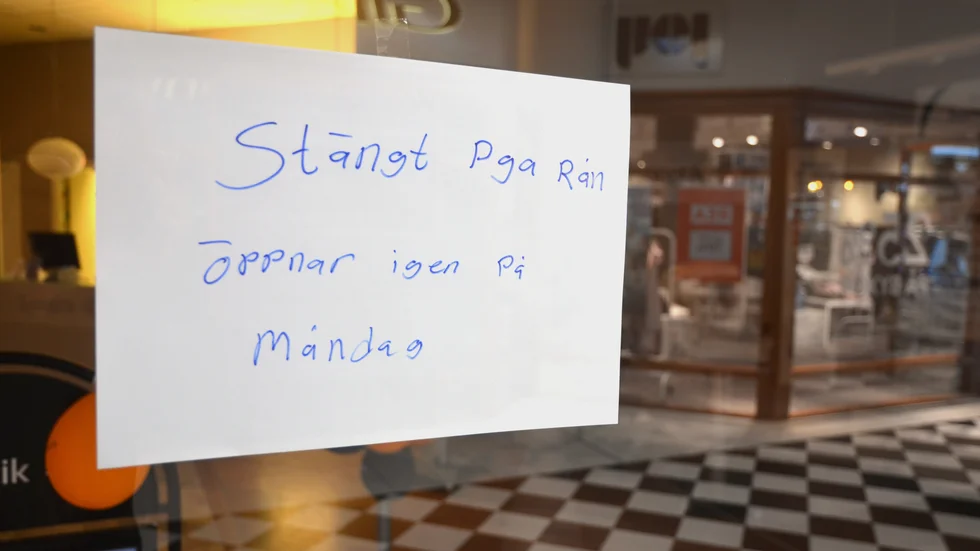 Stängt pga Rån
öppnar igen på
Måndag
ik